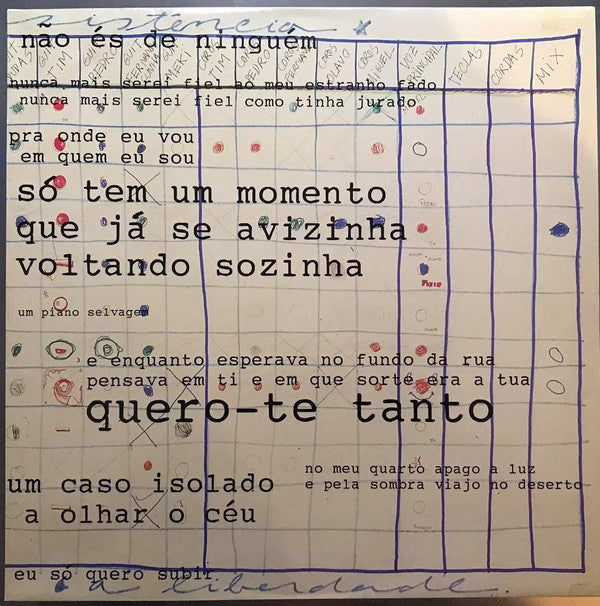 não és de ninguém
TIM
MEKI
TIM
PEDRO
VOZ
PRINCIPAL
TECLAS
CORDAS
MIX
nunca mais serei fiel ao meu estranho fado
nunca mais serei fiel como tinha jurado
pra onde eu vou
em quem eu sou
só tem um momento
que já se avizinha
voltando sozinha
um piano selvagem
e enquanto esperava no fundo da rua
pensava em ti e em que sorte era a tua
quero-te tanto
no meu quarto apago a luz
e pela sombra viajo no deserto
um caso isolado
a olhar o céu
eu só quero subir
a liberdade